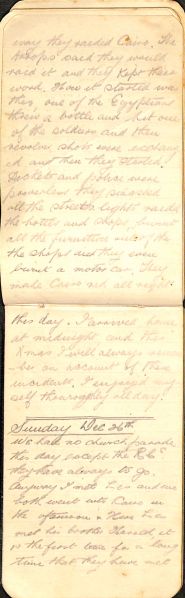 way they raided Cairo. The
troops said they would
raid it and they kept their
word. How it started was
this, one of the Egyptians
threw a bottle and hit one
of the soldiers and then
revolver shots were exchang
ed and then they started.
Pickets and police were
powerless they smashed
all the street lights raided
the hotels and shops, burnt
all the furniture out of the
the shops and they even
burnt a motor car. They
made Cairo red all right
this day. I arrived home
at midnight, and this
Xmas I will always remem
ber on account of these
incidents. I enjoyed my
self thoroughly all day.
Sunday Dec 26th
We had no church parade
this day except the R.Cs
they have always to go.
Anyway I met Les and we
both went into Cairo in
the afternoon & there Les
met his brother Harold, it
is the first time for a long
time that they have met